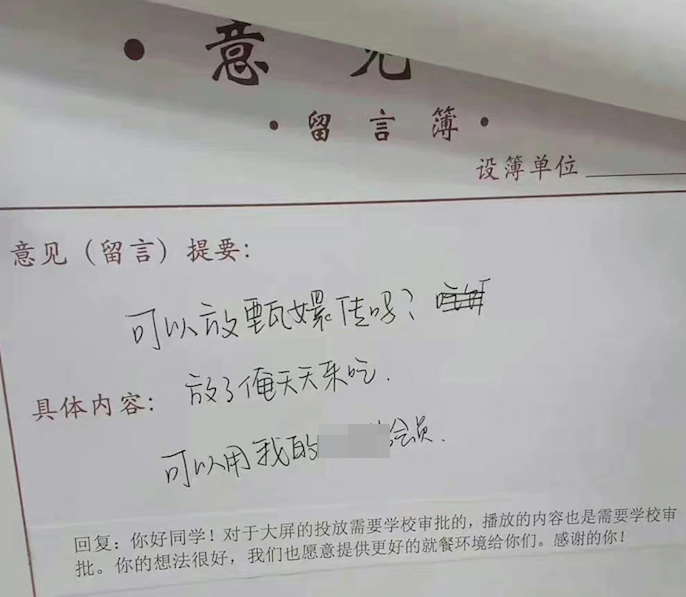 · 意 见
· 留 言 簿 ·
设簿单位
意见（留言）提要：
可以放甄嬛传吗？
具体内容： 放了俺天天来吃.
可以用我的 会员.
回复：你好同学！对于大屏的投放需要学校审批的，播放的内容也是需要学校审
批。你的想法很好，我们也愿意提供更好的就餐环境给你们。感谢的你！